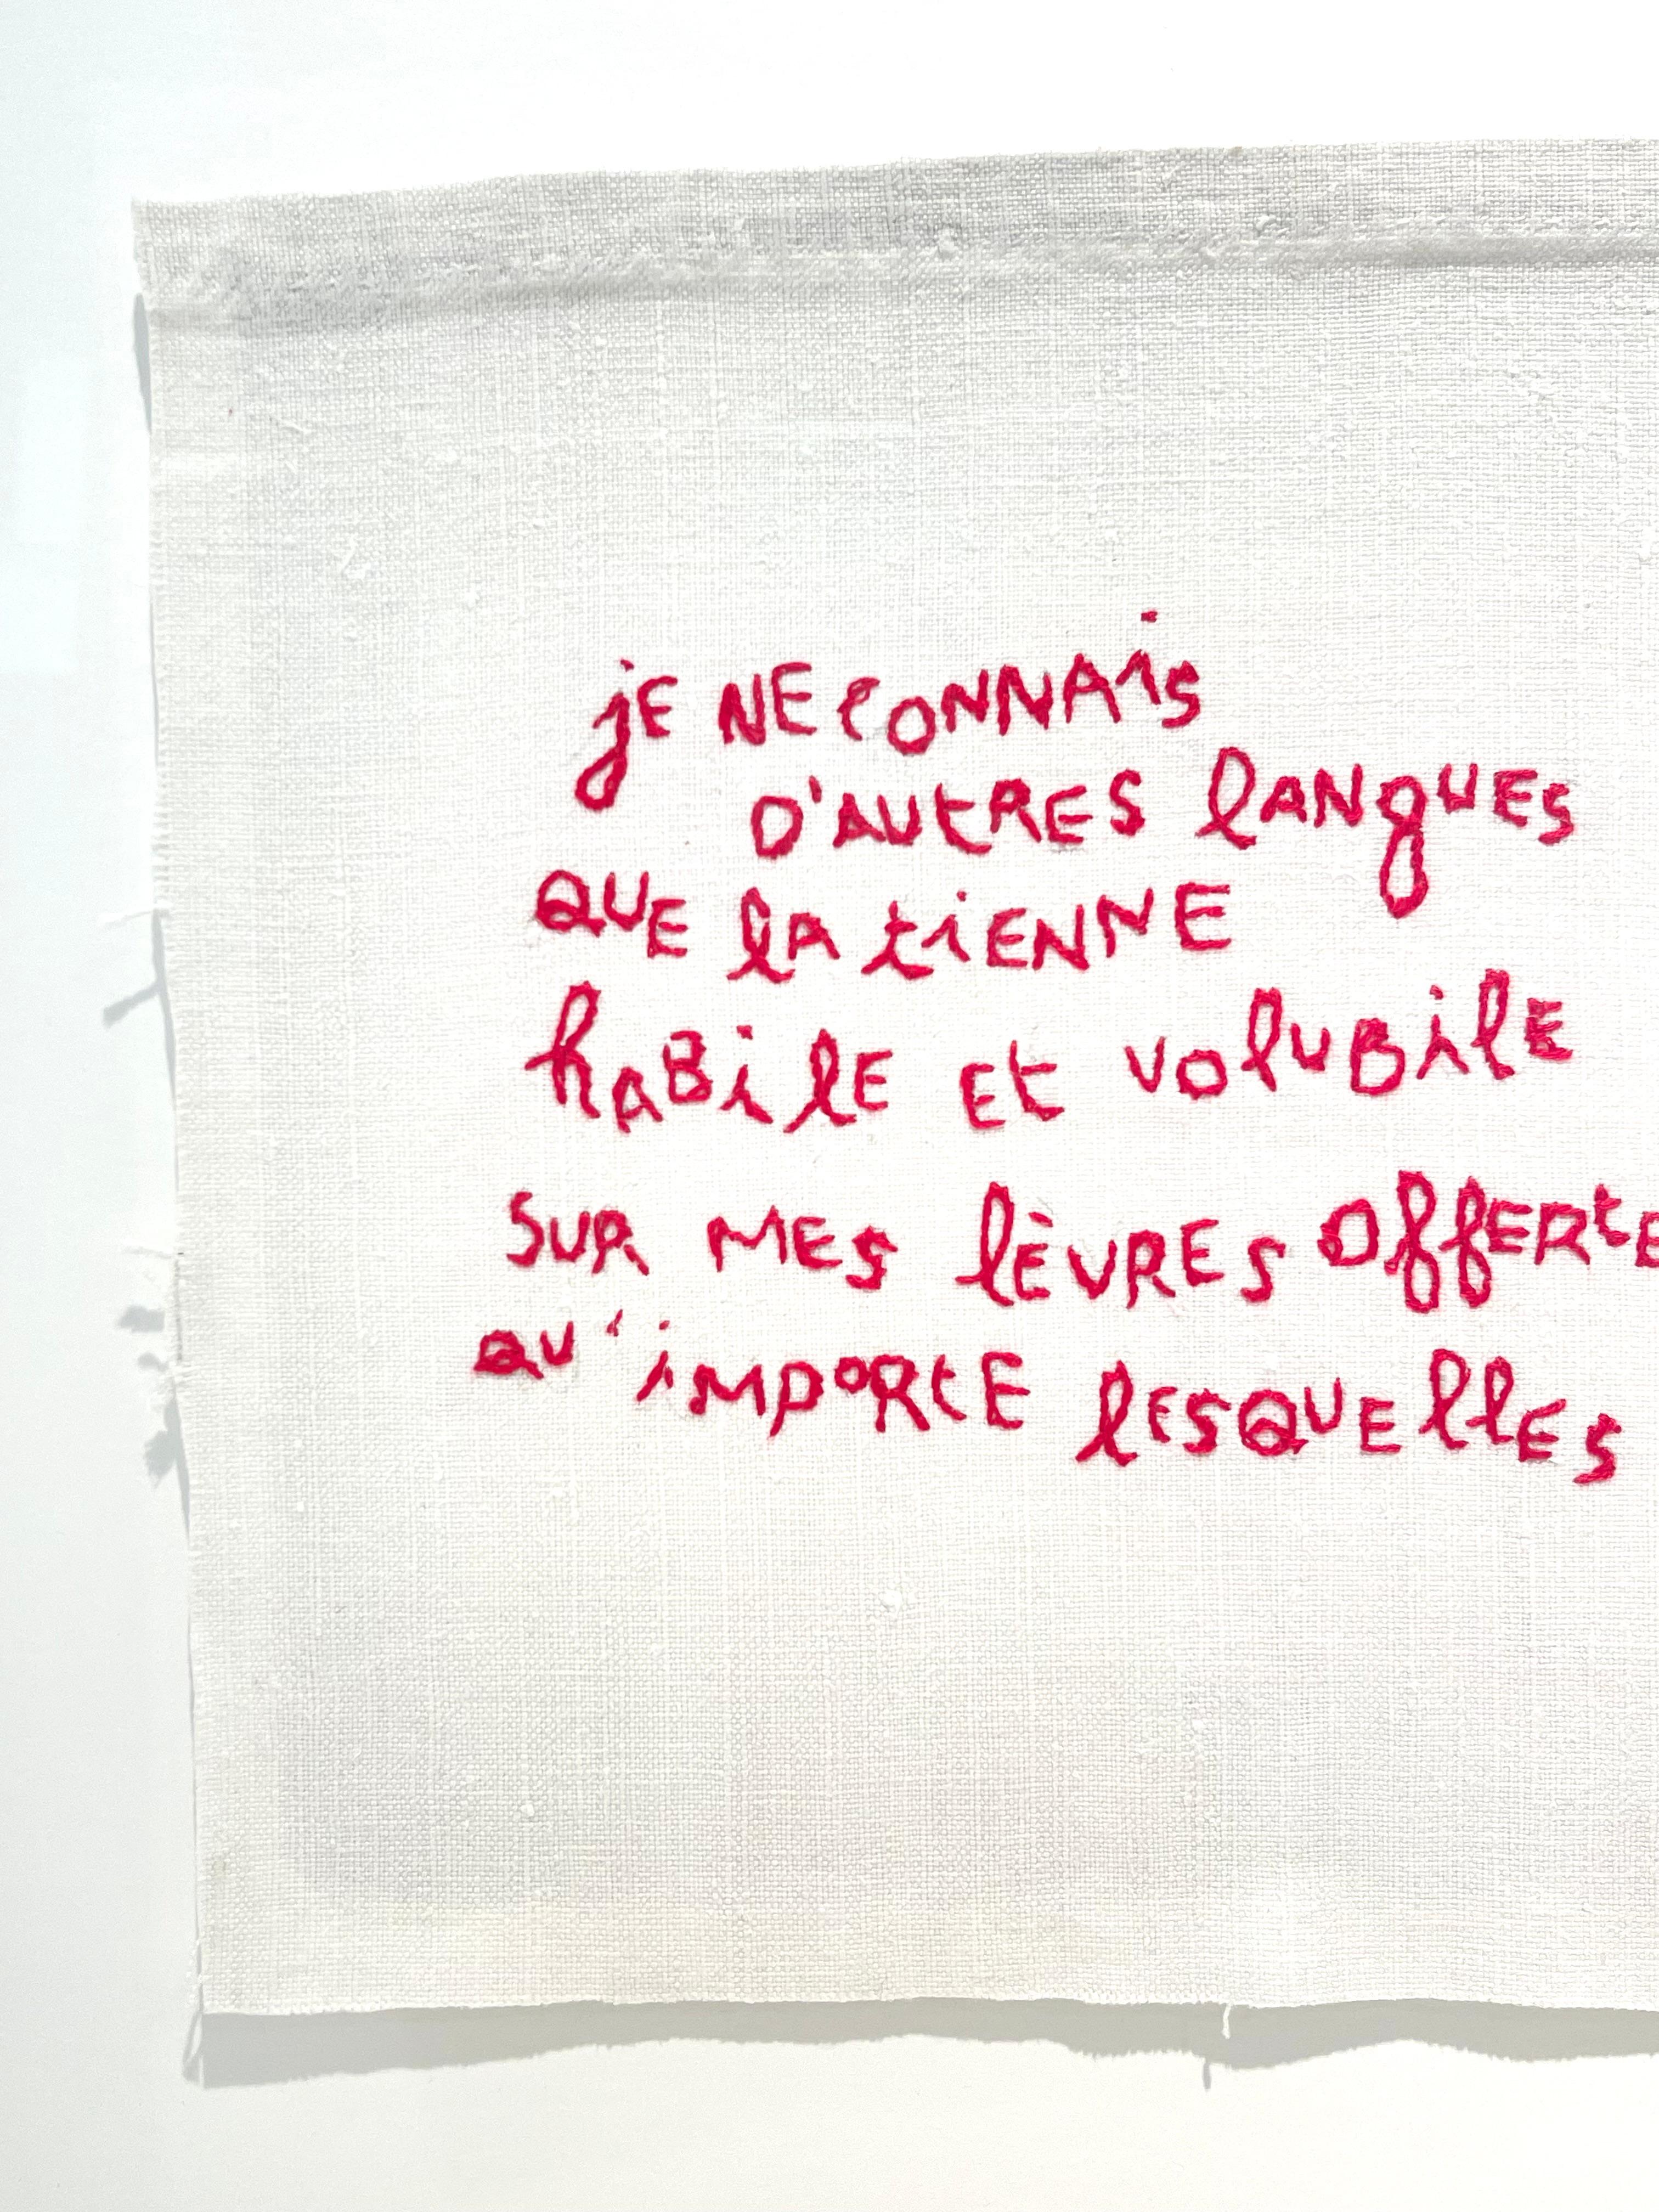 jE NE CONNAis
D'AUtRES lANgUES
QUE lA tiENNE
hABilE Et VOlUBilE
SUR MES lÈVRES OffERtE
QU'iMPORtE lESQUEllES